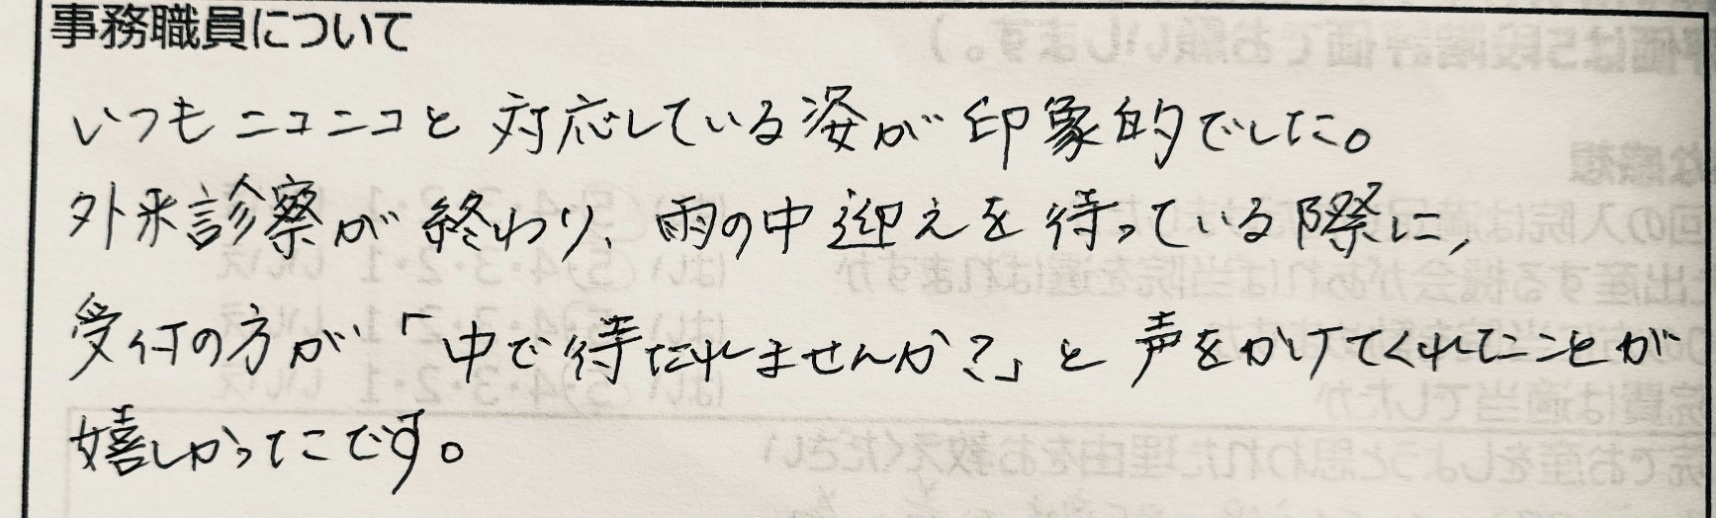 事務職員について
いつもニコニコと対応している姿が印象的でした。
外来診察が終わり、雨の中迎えを待っている際に、
受付の方が「中で待たれませんか?」と声をかけてくれたことが
嬉しかったです。